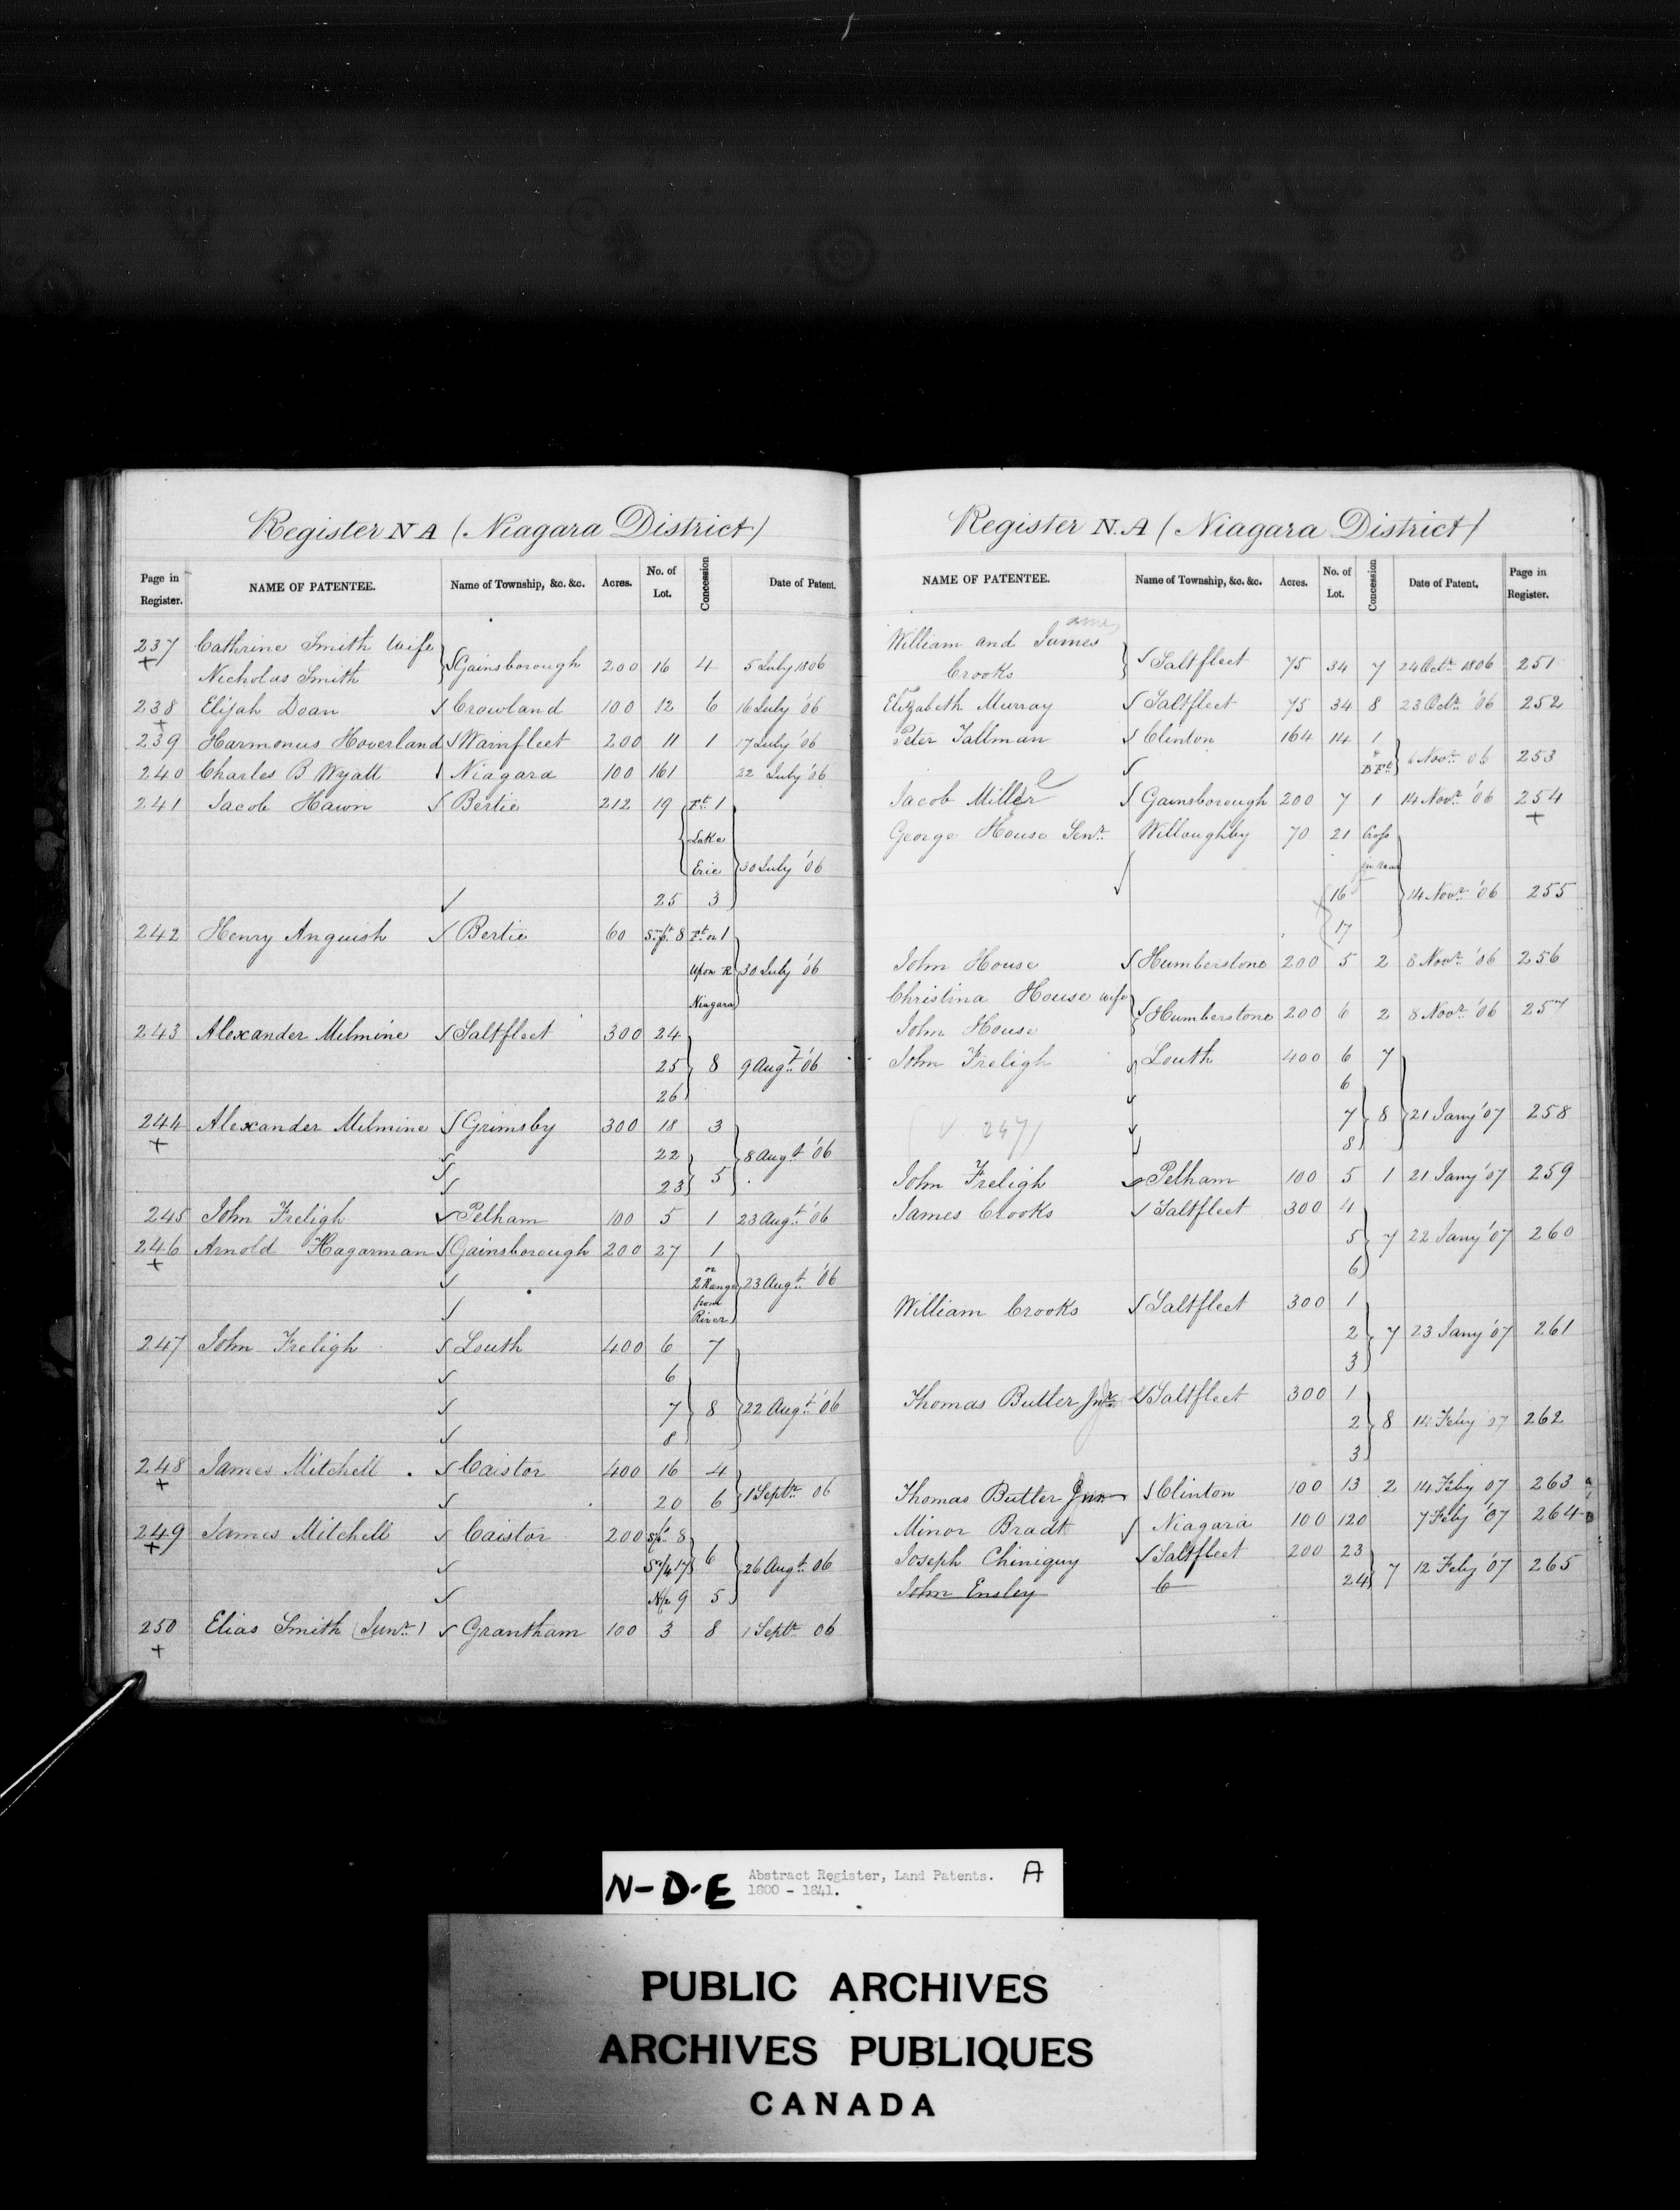 Register N A (Niagara District)
Page in Register. NAME OF PATENTEE. Name of Township, &c. &c. Acres. No. of Lot. Concession Date of Patent.
237 Cathrine Smith wife
+ Nicholas Smith } Gainsborough 200 16 4 5 July 1806
238 Elijah Doan Crowland 100 12 6 16 July '06
+
239 Harmonus Hoverland Wainfleet 200 11 1 17 July '06
240 Charles B Wyatt Niagara 100 161 22 July '06
241 Jacob Hawn Bertie 212 19 Ft. 1
Lake
Erie 30 July '06
25 3
242 Henry Anguish Bertie 60 8 1
Upon R 30 July '06
Niagara
243 Alexander Milmine Saltfleet 300 24
25 8 9 Augt. '06
26
244 Alexander Milmine Grimsby 300 18 3
+ 22 8 Augt. '06
23 5
245 John Freligh Pelham 100 5 1 23 Augt. '06
246 Arnold Hagarman Gainsborough 200 27 1
+ or
2 Range 23 Augt. '06
from
River
247 John Freligh Louth 400 6 7
6
7 8 22 Augt. '06
8
248 James Mitchell Caistor 400 16 4
+ 20 6 1 Septr. 06
249 James Mitchell Caistor 200 8
+ 17 6 26 Augt. 06
N/2 9 5
250 Elias Smith (Junr.) Grantham 100 3 8 1 Septr. 06
+
Register N.A (Niagara District)
NAME OF PATENTEE. Name of Township, &c. &c. Acres. No. of Lot. Concession Date of Patent. Page in Register.
William and James
Crooks } Saltfleet 75 34 7 24 Octr. 1806 251
Elizabeth Murray Saltfleet 75 34 8 23 Octr. '06 252
Peter Tallman Clinton 164 14 1
& B Ft. 6 Novr. 06 253
Jacob Miller Gainsborough 200 7 1 14 Novr. '06 254
+
George House Senr. Willoughby 70 21 Cross
in rear
16 14 Novr. '06 255
17
John House Humberstone 200 5 2 8 Novr. '06 256
Christina House wife
John House } Humberstone 200 6 2 8 Novr. '06 257
John Freligh Louth 400 6 7
6
V. 247 7 8 21 Jany '07 258
8
John Freligh Pelham 100 5 1 21 Jany '07 259
James Crooks Saltfleet 300 4
5 7 22 Jany '07 260
6
William Crooks Saltfleet 300 1
2 7 23 Jany '07 261
3
Thomas Butler Jnr. Saltfleet 300 1
2 8 14 Feby 07 262
3
Thomas Butler Jnr. Clinton 100 13 2 14 Feby 07 263
Minor Bradt Niagara 100 120 7 Feby '07 264
Joseph Chiniguy Saltfleet 200 23
24 7 12 Feby '07 265
John Ensley C
N-D-E Abstract Register, Land Patents. A
1800 - 1841.
PUBLIC ARCHIVES
ARCHIVES PUBLIQUES
CANADA